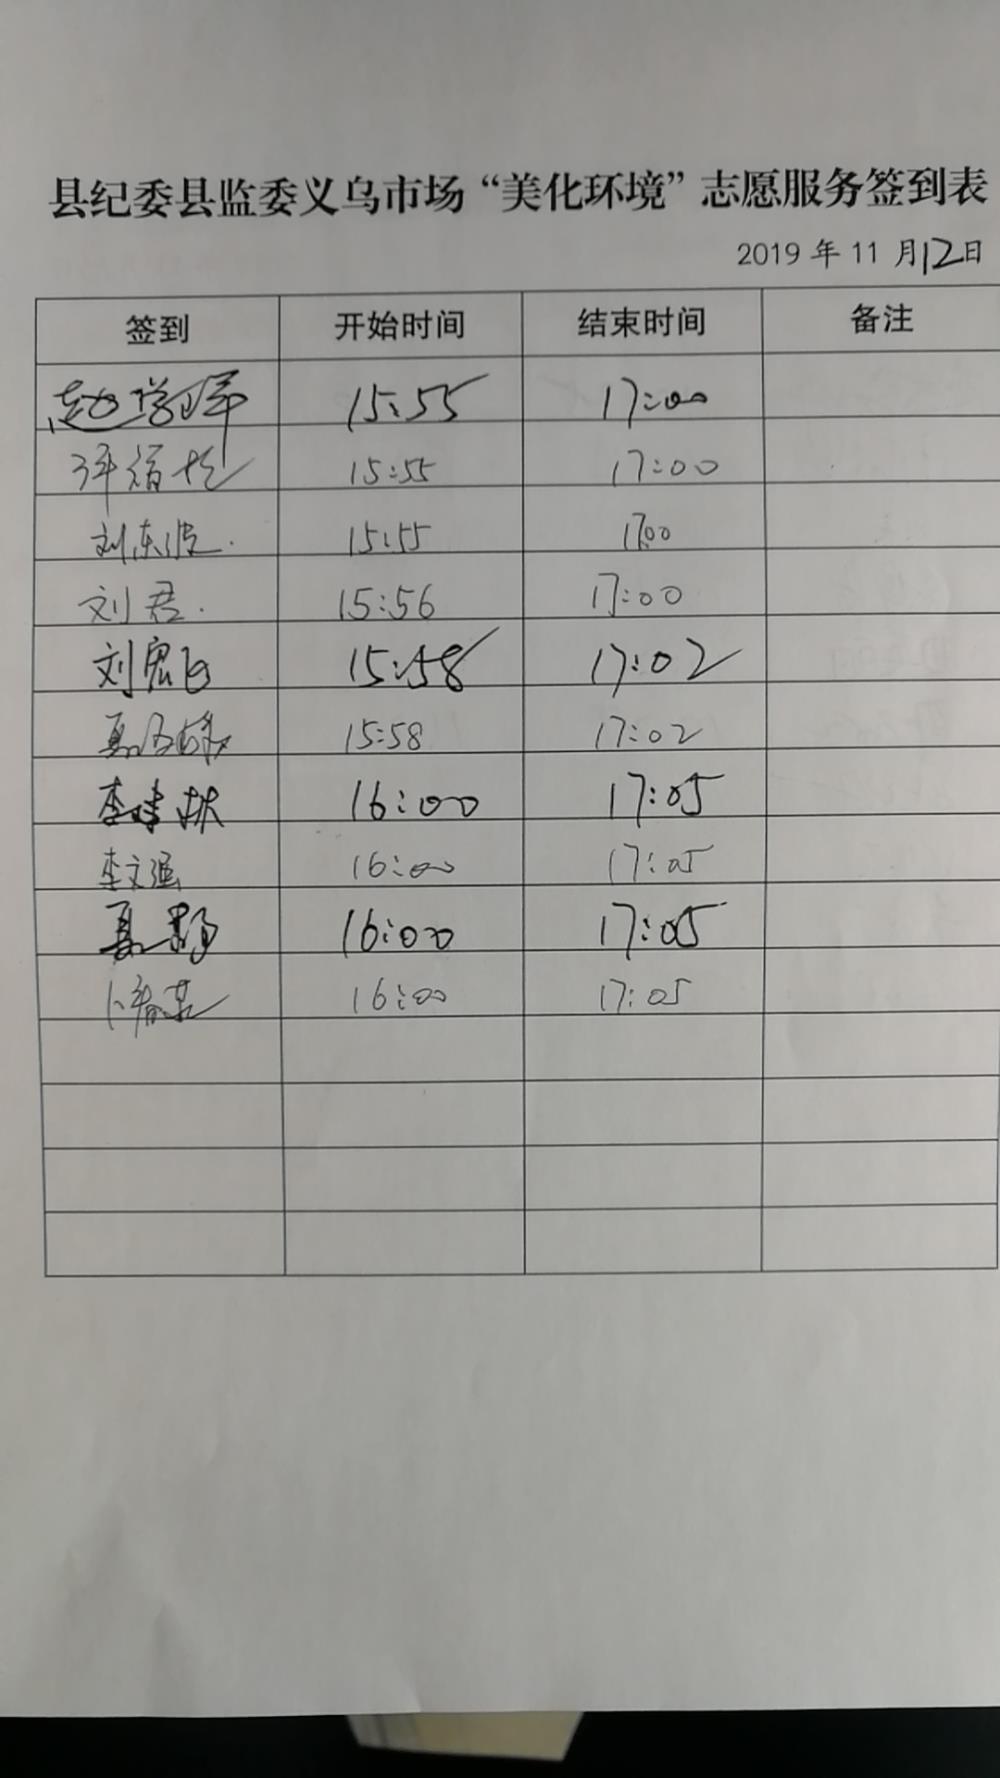 县纪委县监委义乌市场“美化环境”志愿服务签到表
2019 年 11 月12日
签到 开始时间 结束时间 备注
15:55 17:00
15:55 17:00
刘东波. 15:55 17:00
刘君. 15:56 17:00
刘宏飞 15:58 17:02
15:58 17:02
李 16:00 17:05
李文强 16:00 17:05
夏 16:00 17:05
卜春 16:00 17:05